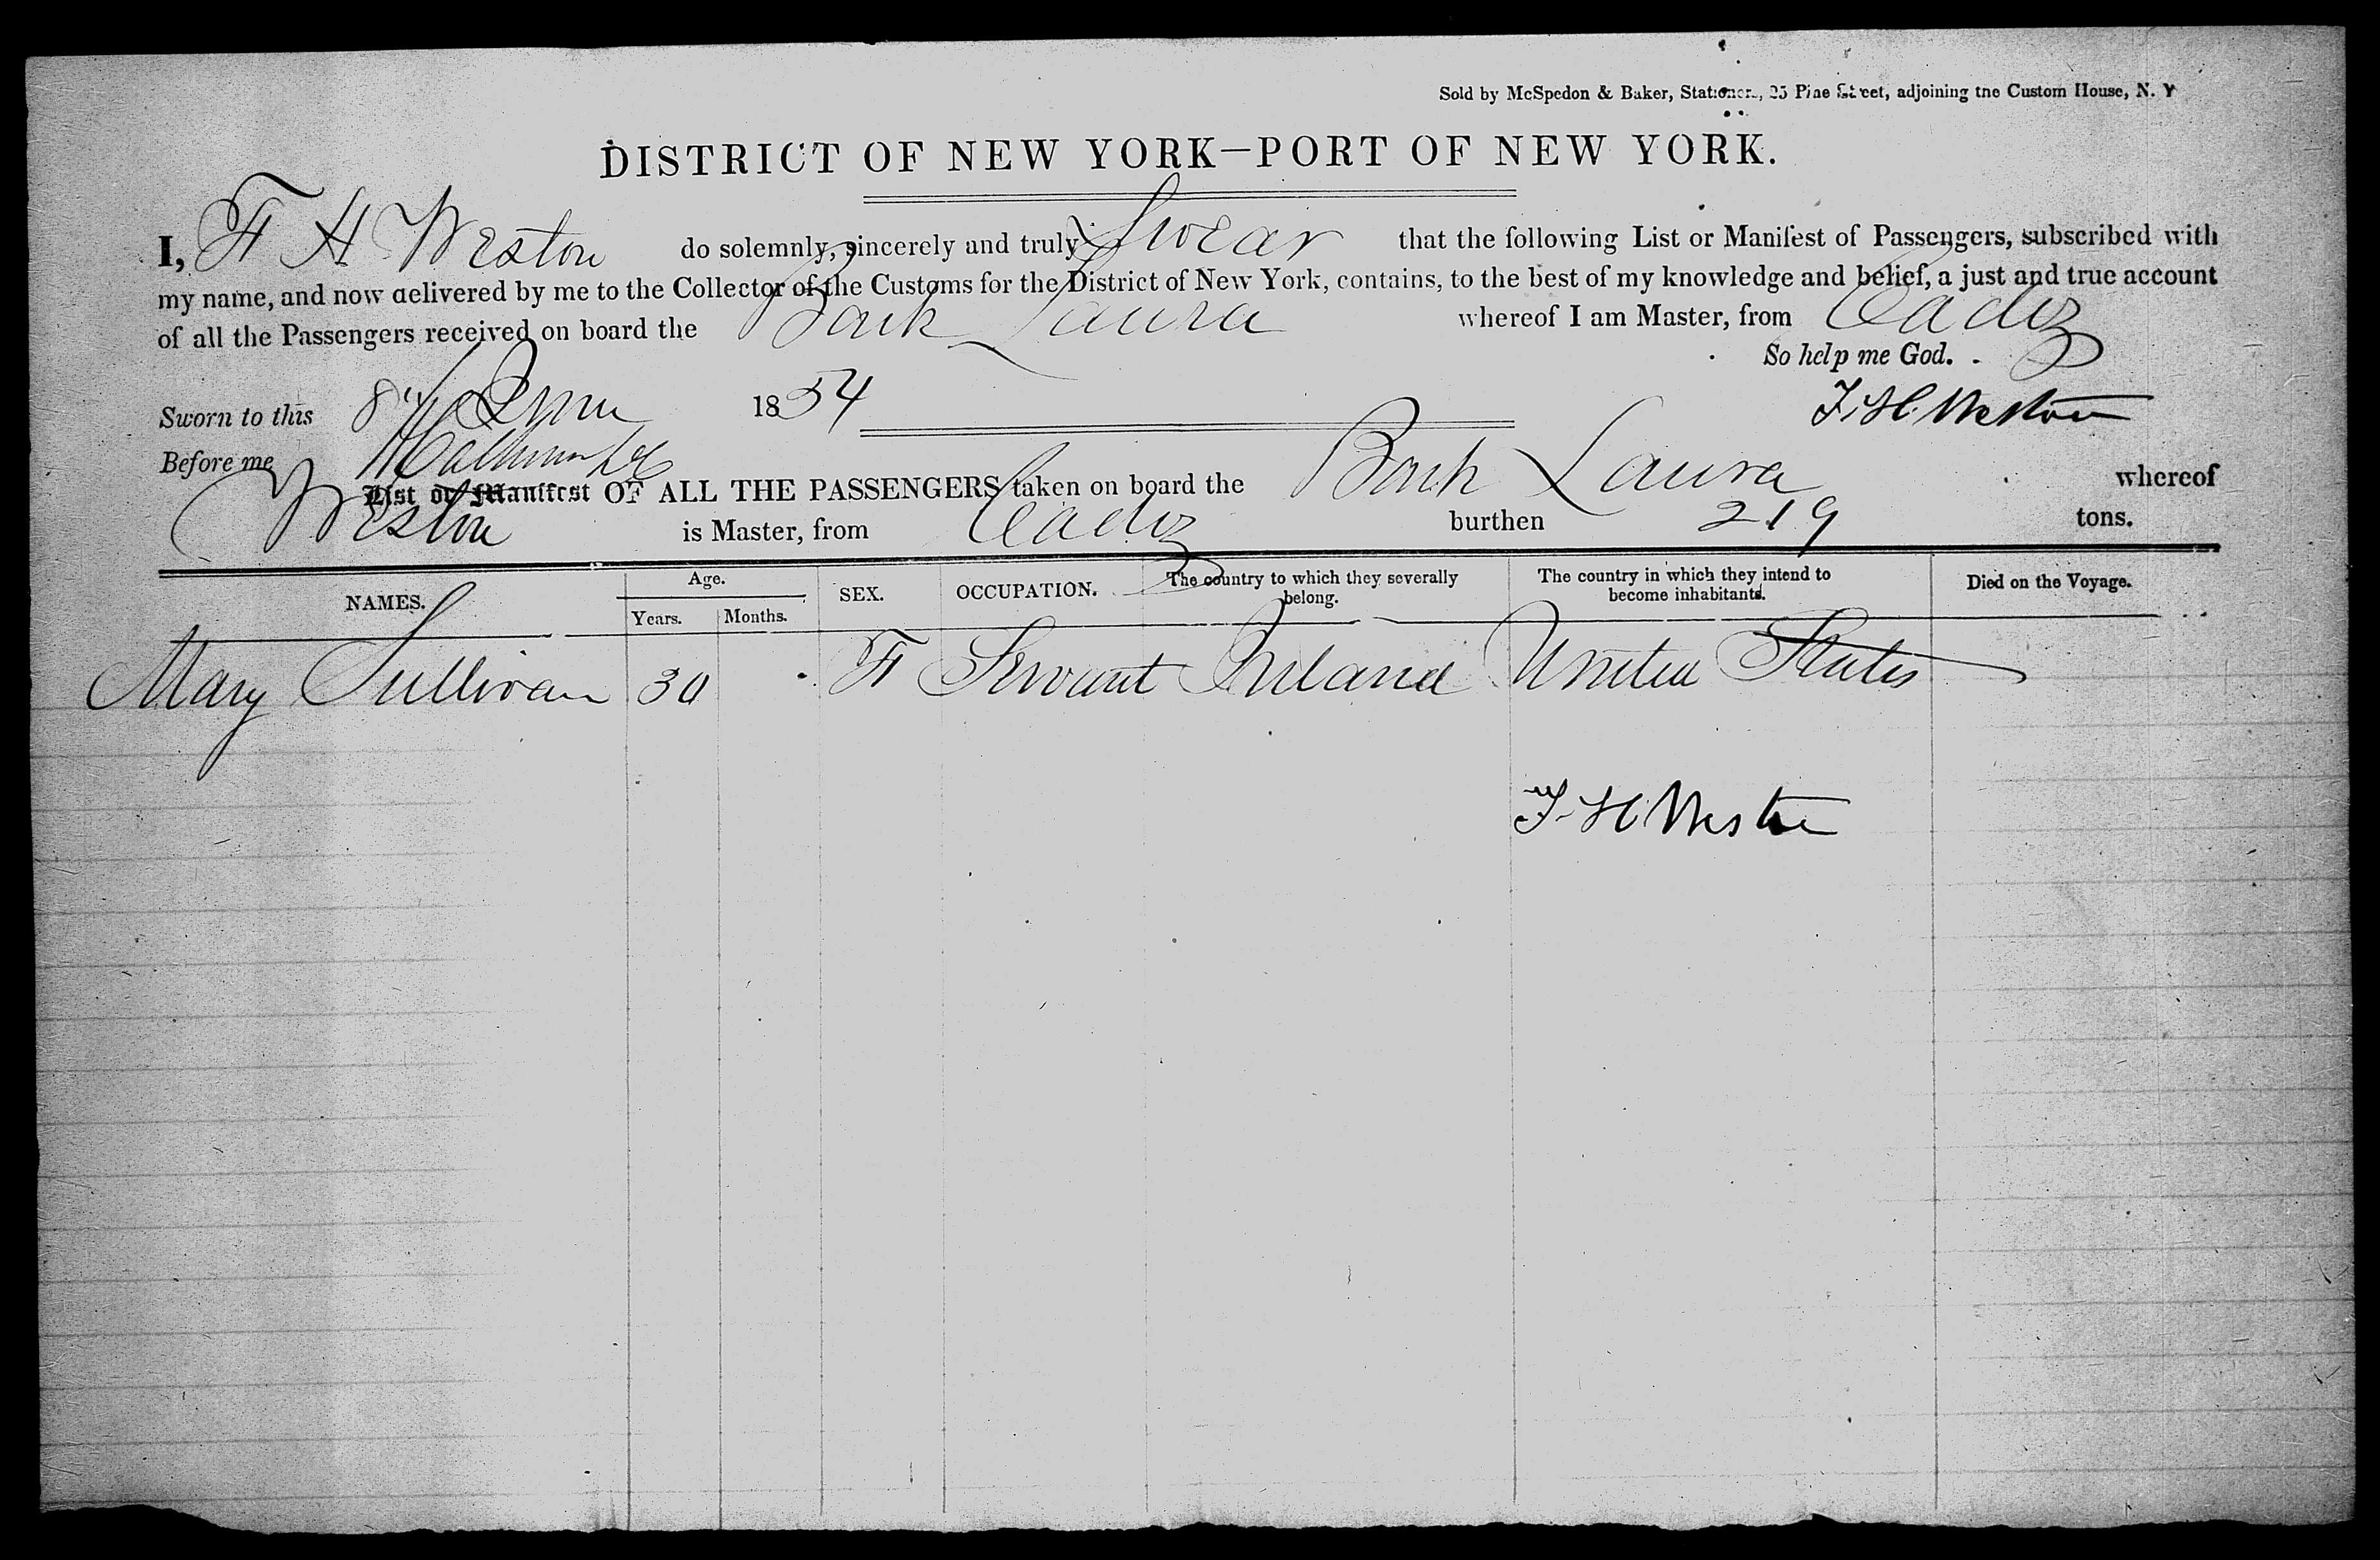 Sold by McSpedon & Baker, Stationers, 25 Pine Street, adjoining the Custom House, N. Y
DISTRICT OF NEW YORK—PORT OF NEW YORK.
I, F H Weston do solemnly, sincerely and truly Swear that the following List or Manifest of Passengers, subscribed with
my name, and now delivered by me to the Collector of the Customs for the District of New York, contains, to the best of my knowledge and belief, a just and true account
of all the Passengers received on board the Bark Laura whereof I am Master, from Cadiz
So help me God.
Sworn to this 8 1854 F. H. Weston
Before me
List or Manifest OF ALL THE PASSENGERS taken on board the Bark Laura whereof
Weston is Master, from Cadiz burthen 219 tons.
NAMES. Age. Years. Months. SEX. OCCUPATION. The country to which they severally belong. The country in which they intend to become inhabitants. Died on the Voyage.
Mary Sullivan 30 F Servant Ireland United States
F. H Weston